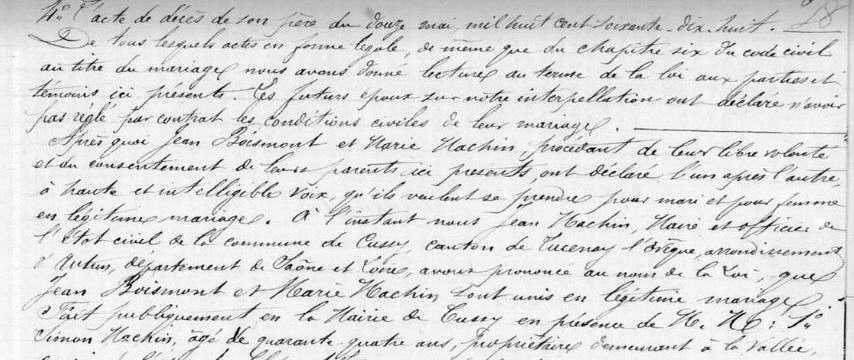 4° l'acte de décès de son père du douze mai, mil huit cent soixante-dix-huit.
De tous lesquels actes en forme légale, de même que du chapitre six du code civil
au titre du mariage nous avons donné lecture au terme de la loi aux parties et
témoins ici présents. Les futurs époux sur notre interpellation ont déclaré n'avoir
pas réglé par contrat les conditions civiles de leur mariage.
Après quoi Jean Boismont et Marie Nachin, procédant de leur libre volonté
et du consentement de leurs parents ici présents, ont déclaré l'un après l'autre,
à haute et intelligible voix, qu'ils veulent se prendre pour mari et pour femme
en légitime mariage. A l'instant nous Jean Nachin, Maire et officier de
l'Etat civil de la commune de Cussy, canton de Lucenay l'Evêque, arrondissement
d'Autun, département de Saône et Loire, avons prononcé au nom de la Loi, que
Jean Boismont et Marie Nachin sont unis en légitime mariage
Fait publiquement en la Mairie de Cussy en présence de M. M: 1°
Simon Nachin, âgé de quarante quatre ans, propriétaire demeurant à la Vallée,